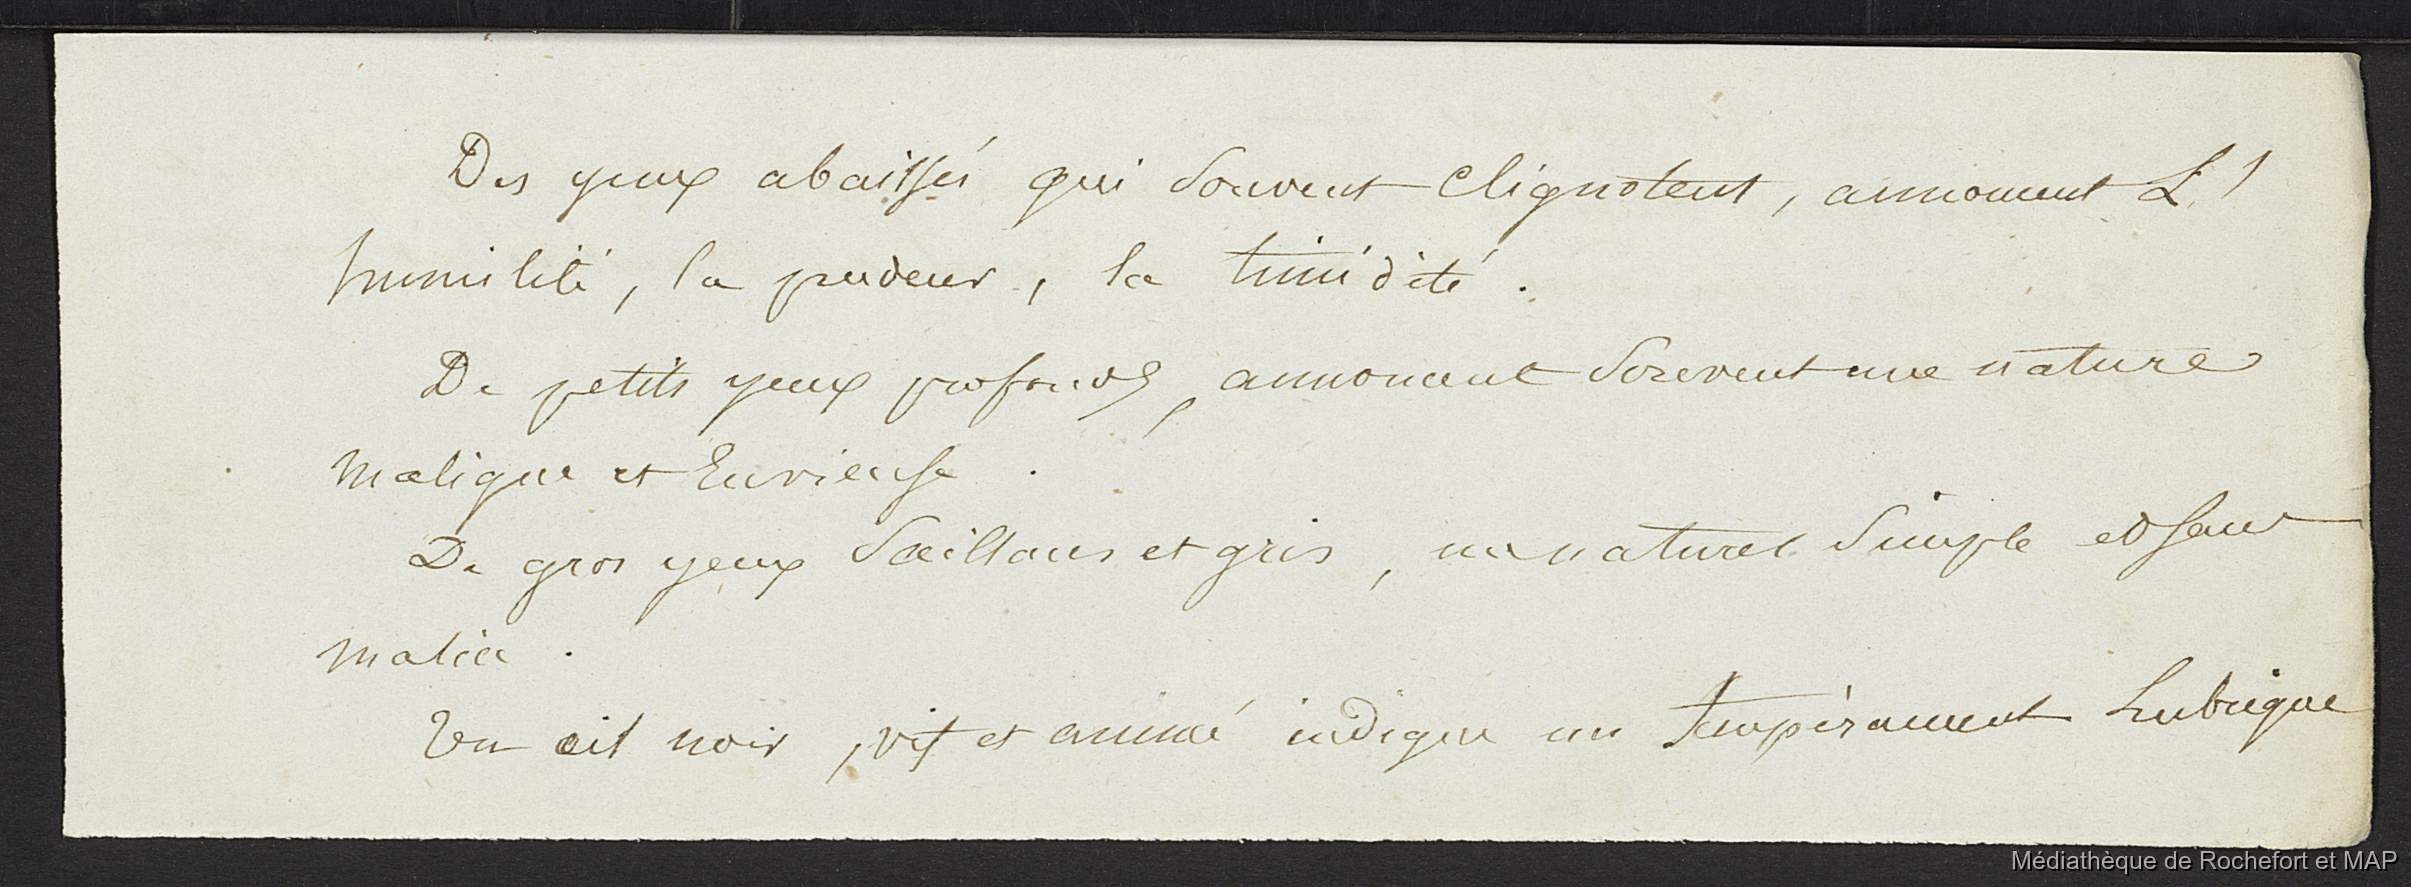 Des yeux abaissés qui souvent clignotent, annoncent L'
humilité, la pudeur, la timidité.
De petits yeux profonds, annoncent souvent une nature
maligne et Envieuse.
De gros yeux Saillans et gris, un naturel Simple et sans
malice.
Un œil noir, vif et animé indique un tempérament Lubrique
Médiathèque de Rochefort et MAP